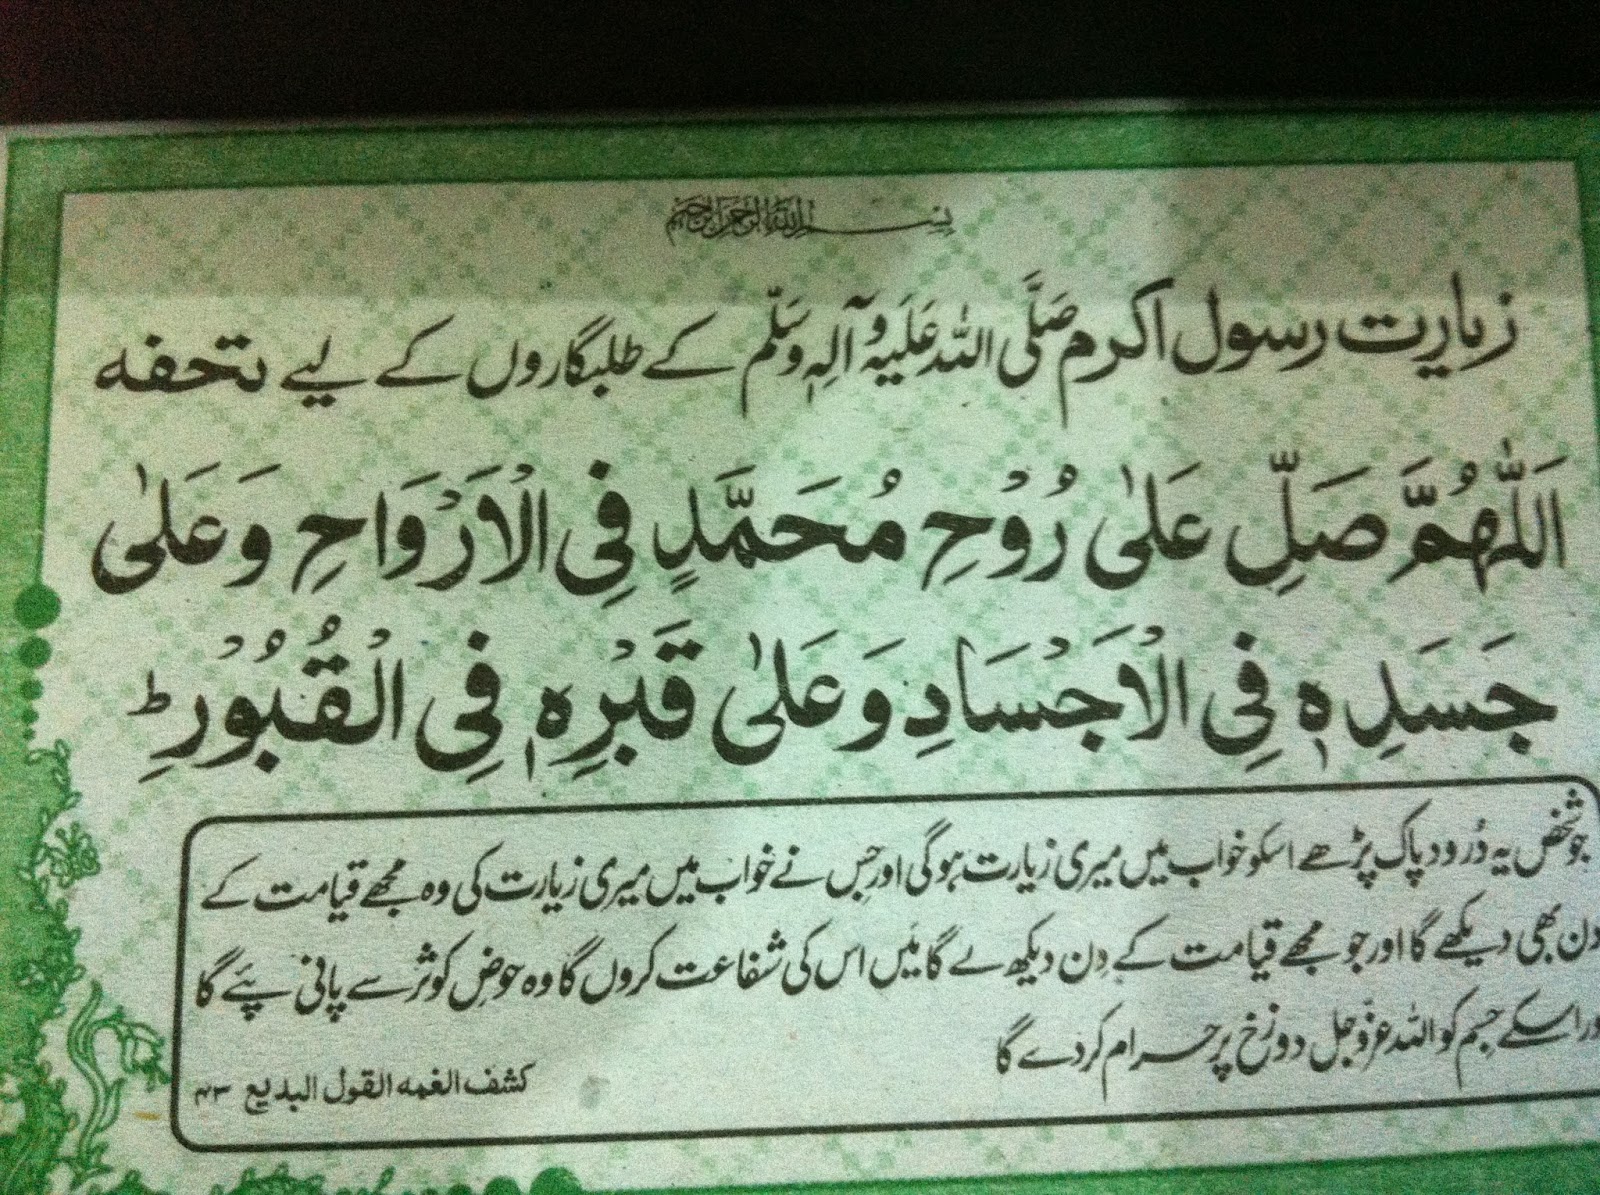 بسم الله الرحمن الرحيم
زیارت رسول اکرم صَلَّی اللہ عَلَیْہِ وَآلِہٖ وَسَلَّم کے طلبگاروں کے لیے تحفہ
اَللّٰهُمَّ صَلِّ عَلٰى رُوْحِ مُحَمَّدٍ فِى الْاَرْوَاحِ وَعَلٰى
جَسَدِهٖ فِى الْاَجْسَادِ وَعَلٰى قَبْرِهٖ فِى الْقُبُوْرِ ؕ
جو شخص یہ دُرود پاک پڑھے اسکو خواب میں میری زیارت ہوگی اور جس نے خواب میں میری زیارت کی وہ مجھے قیامت کے
دن بھی دیکھے گا اور جو مجھے قیامت کے دِن دیکھ لے گا میں اس کی شفاعت کروں گا وہ حوضِ کوثر سے پانی پئے گا
وراسکے جسم کو اللہ عزوجل دوزخ پر حرام کر دے گا
کشف الغمہ القول البدیع ۴۳